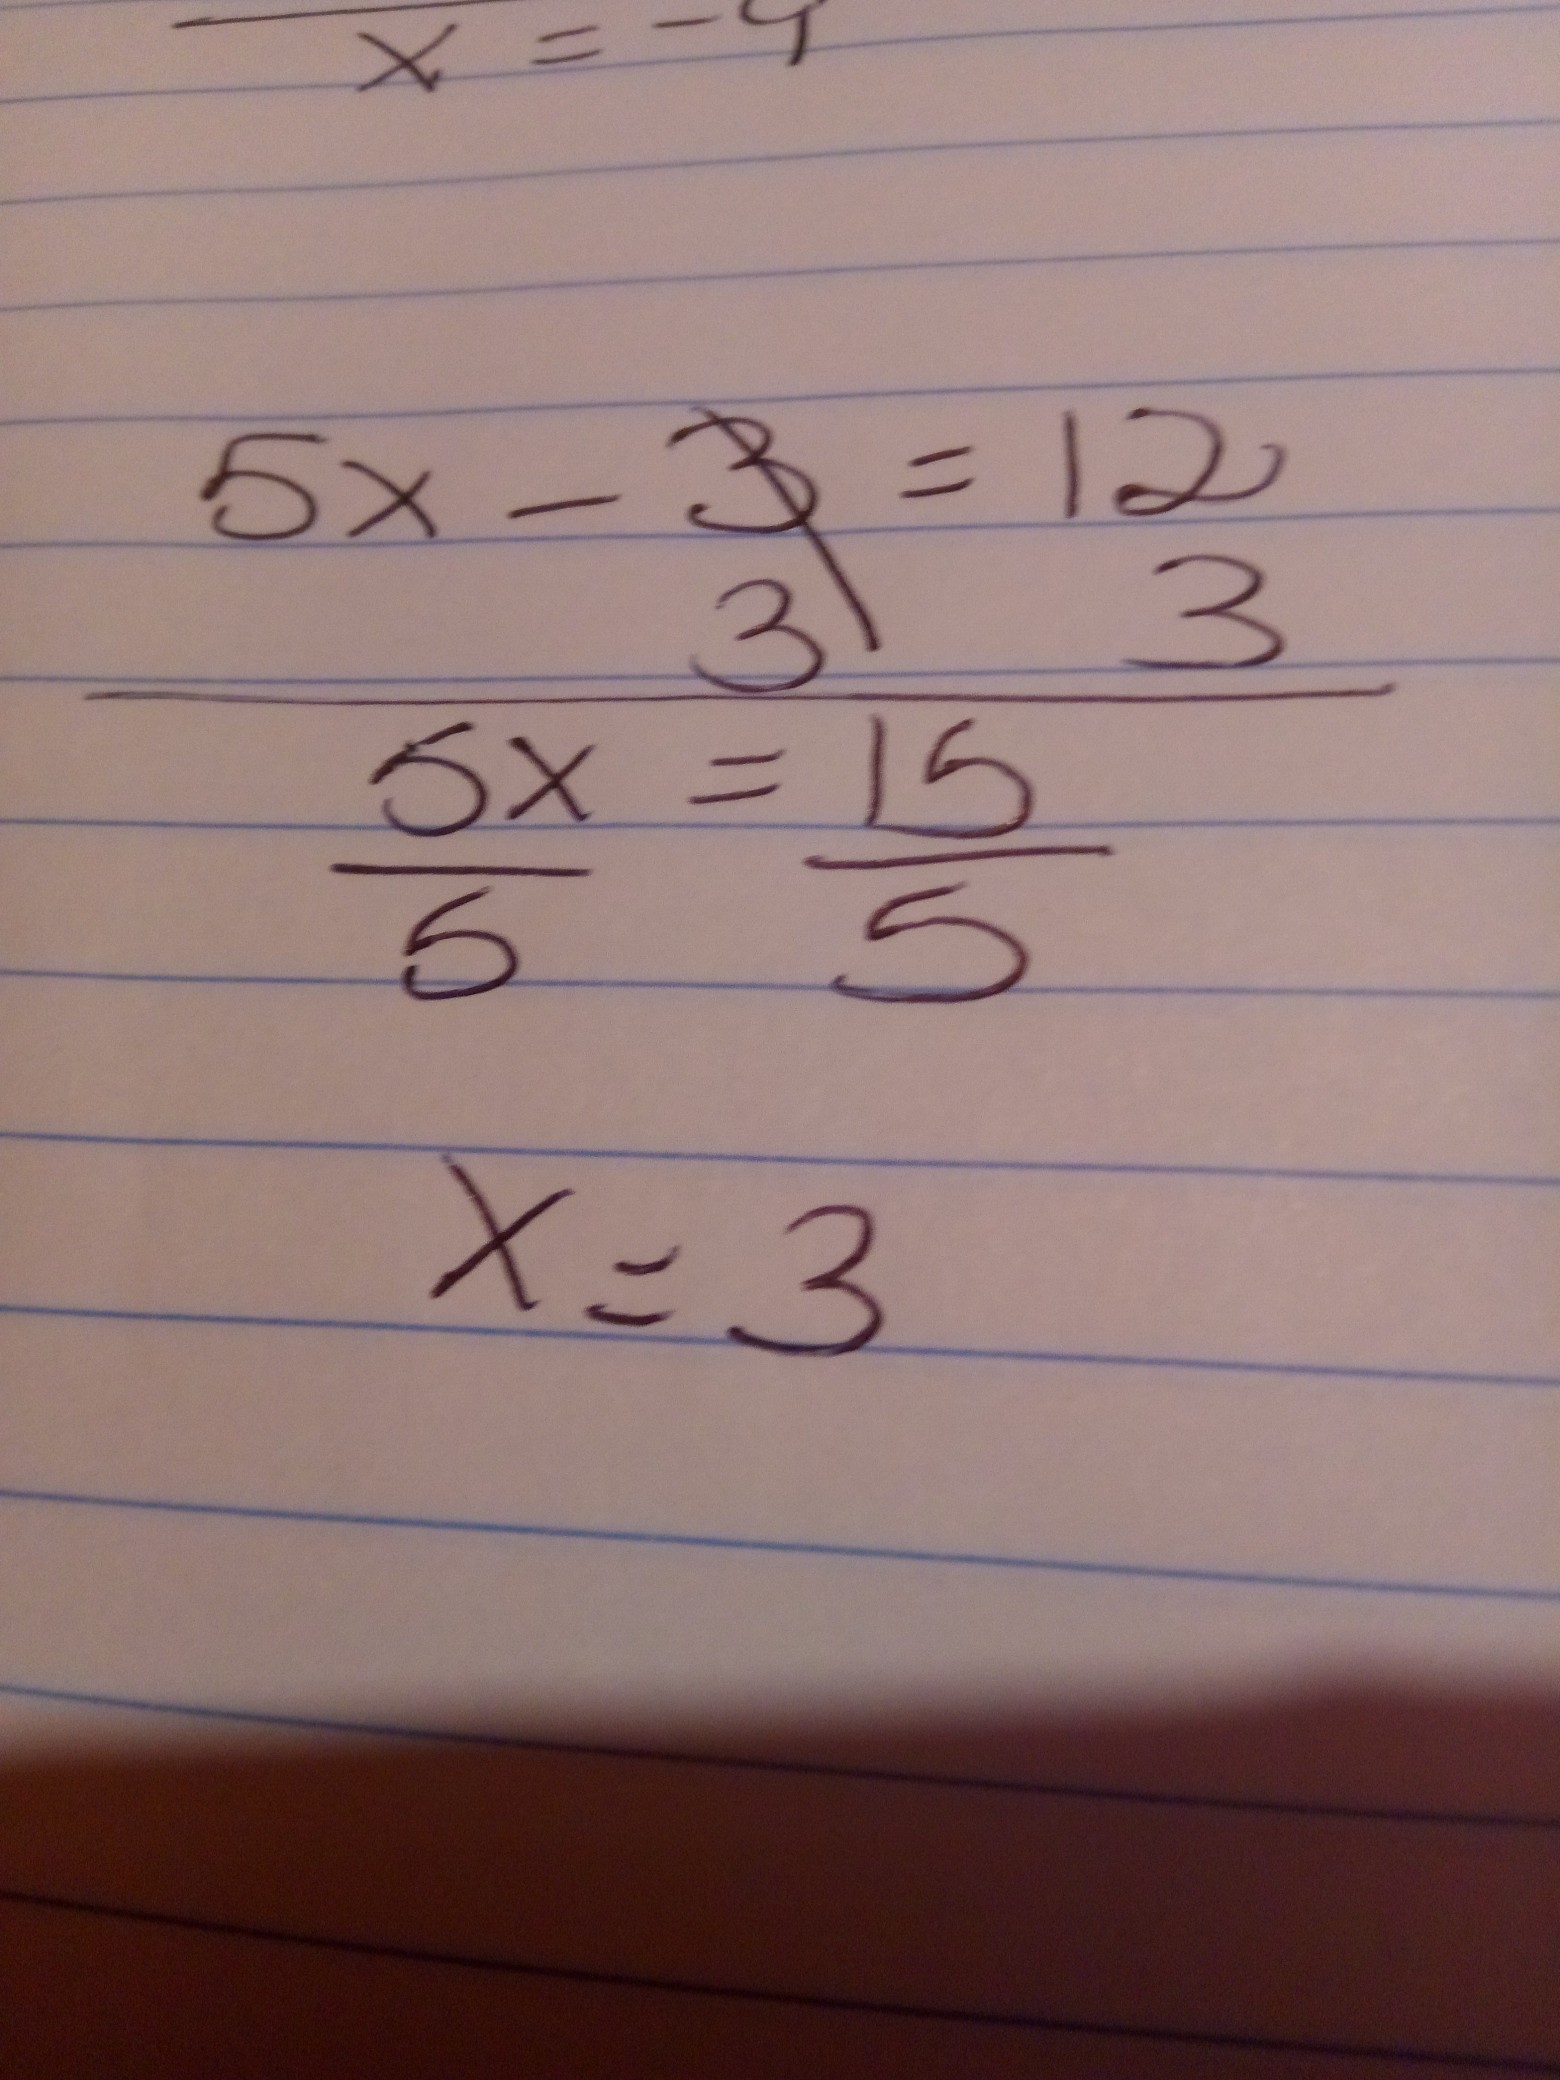 x = -9
5x - 3 = 12
3 3
5x = 15
5 5
x = 3